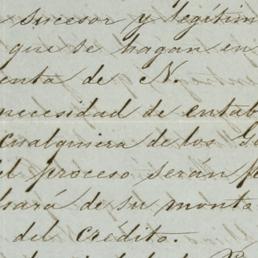 sucesor y legítim
que se hagan en
enta de N.
necesidad de entab
cualquiera de los Go
el proceso serán
sará de su monto
del credito.